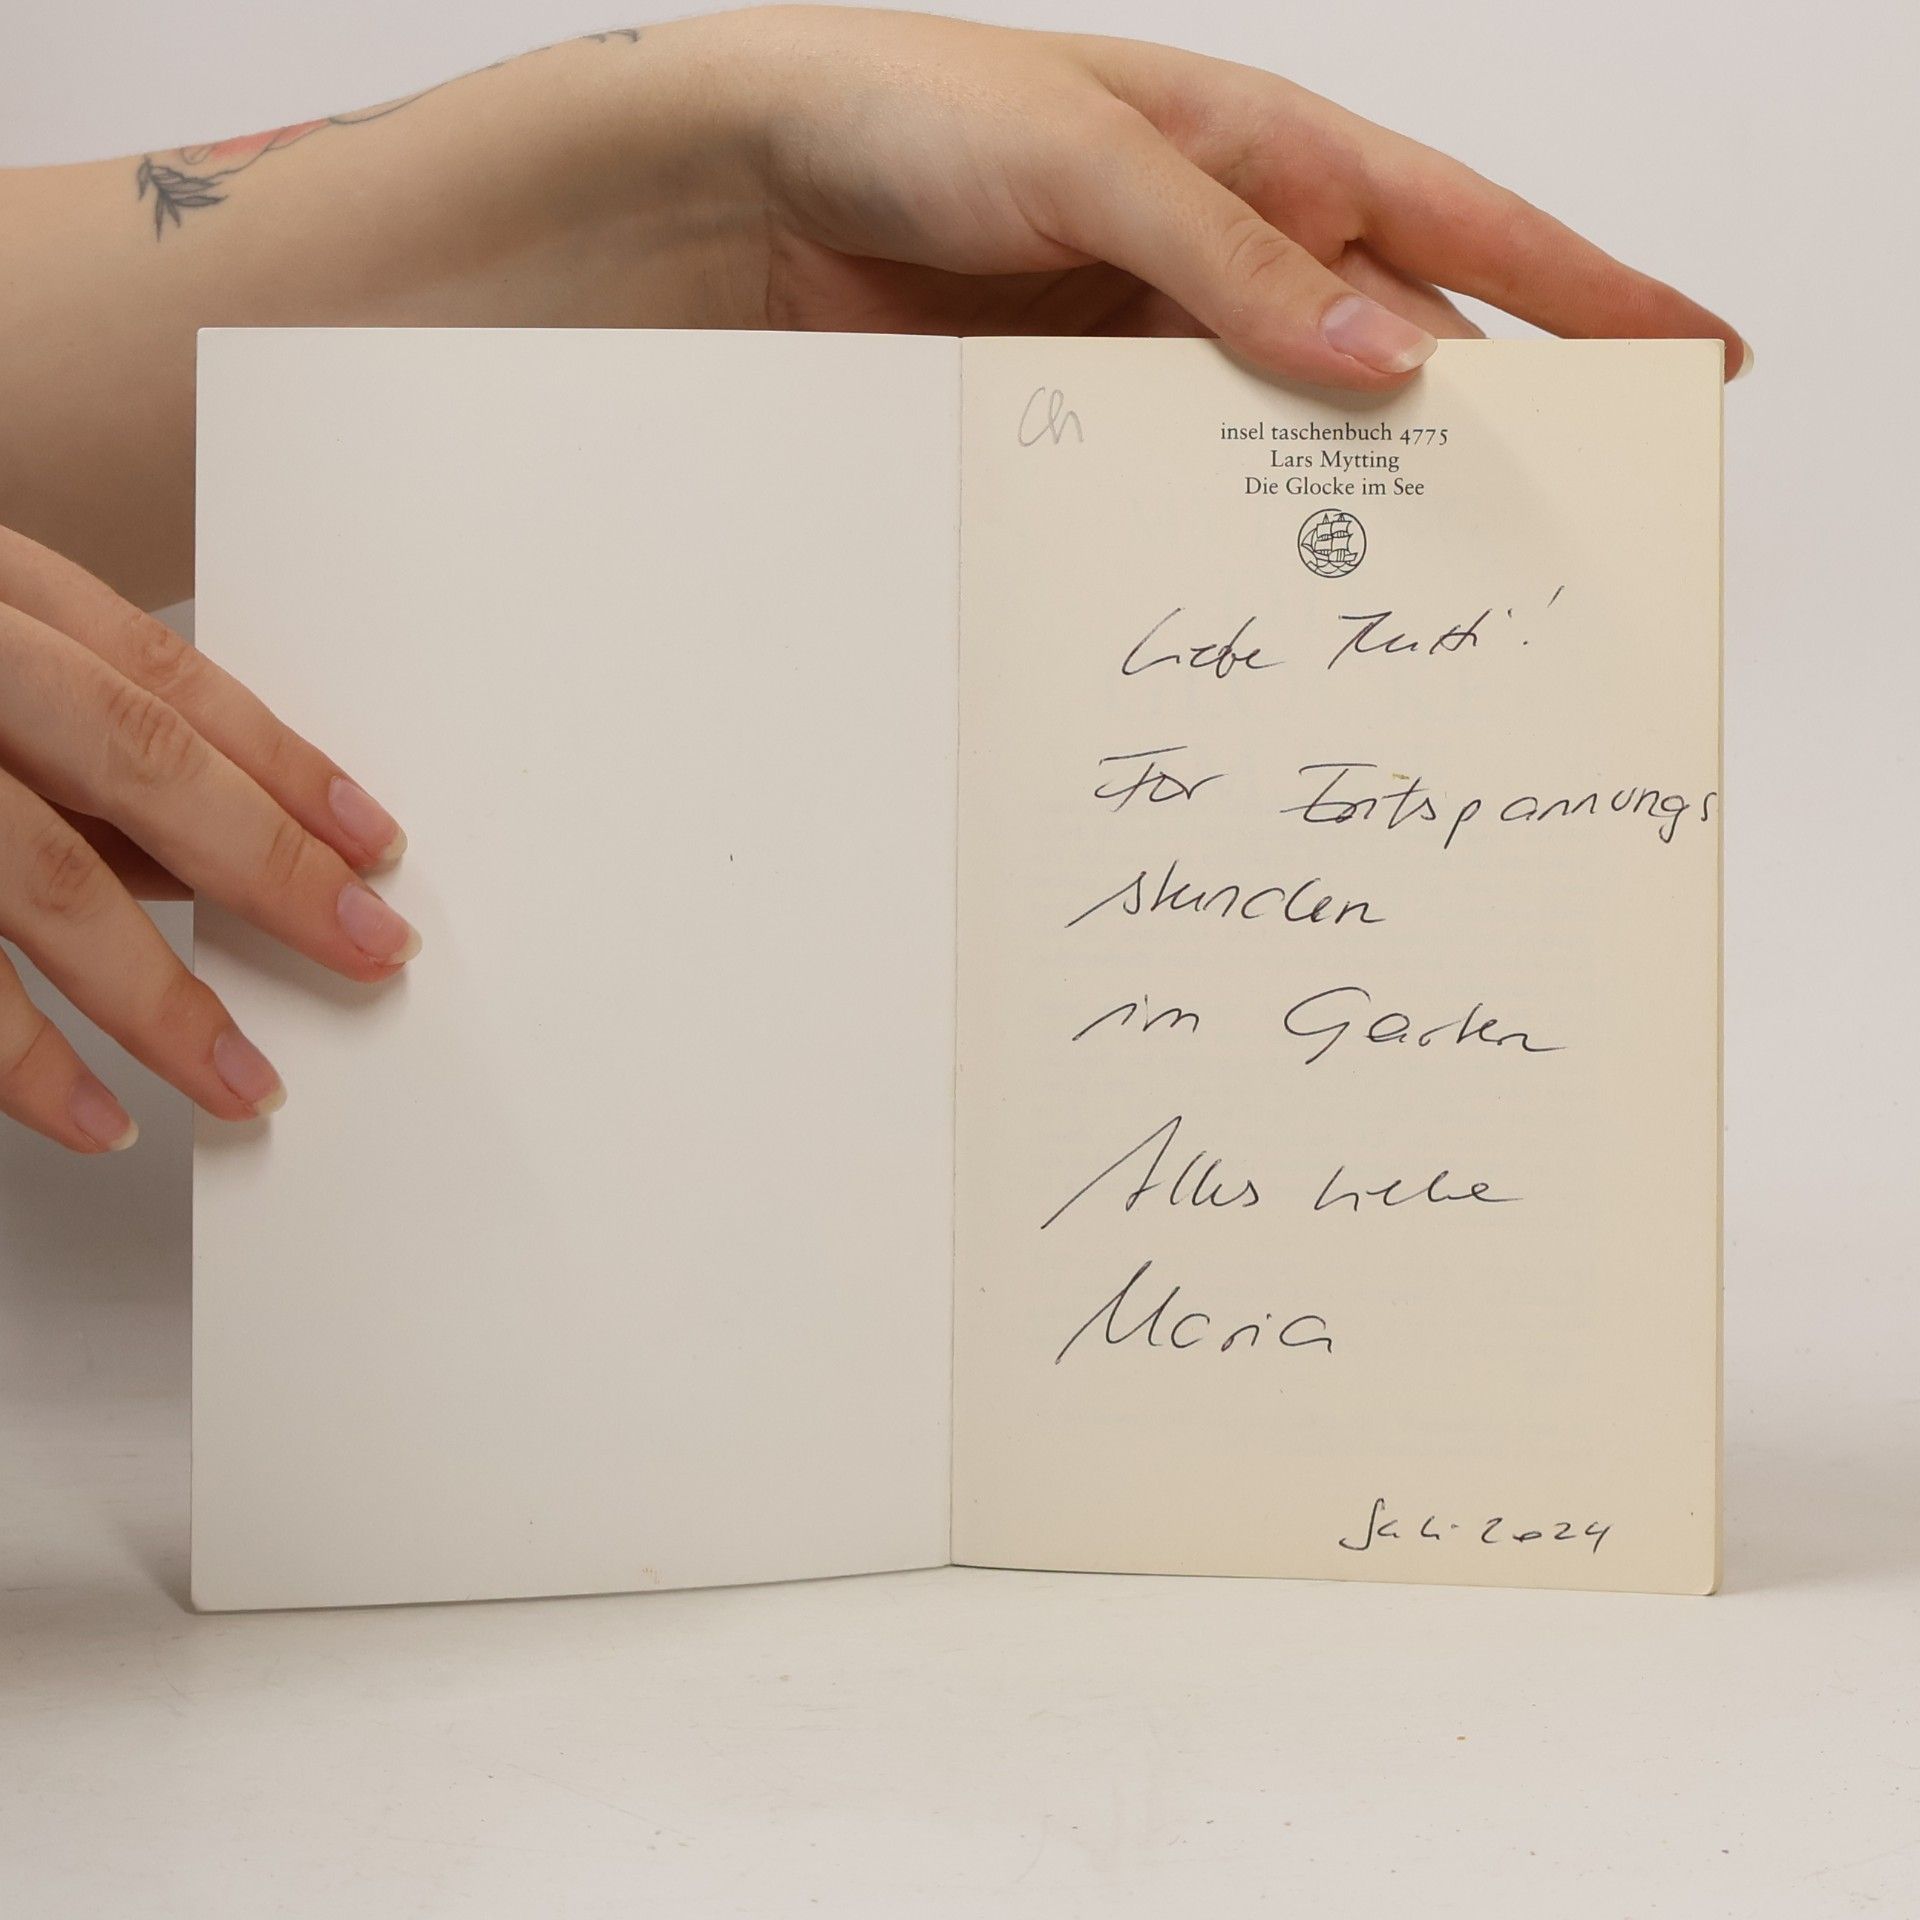 Ch
insel taschenbuch 4775
Lars Mytting
Die Glocke im See
Liebe Mutti!
Für Entspannungs
stunden
im Garten
Alles Liebe
Maria
Juli 2024